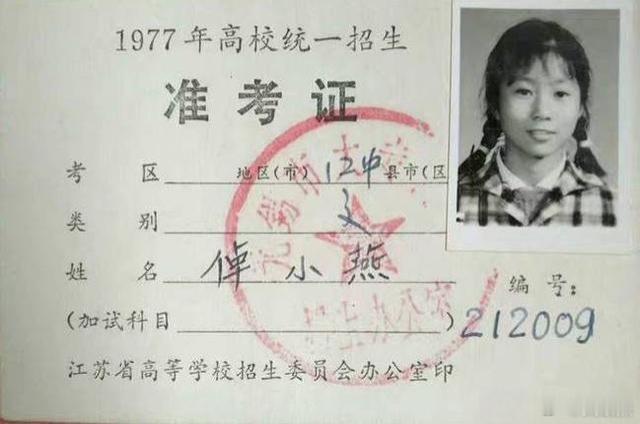 1977年高校统一招生
准考证
考区 地区(市) 12中 县市(区
类别 文
姓名 倬小燕
(加试科目 )
编号:
212009
江苏省高等学校招生委员会办公室印
无锡市